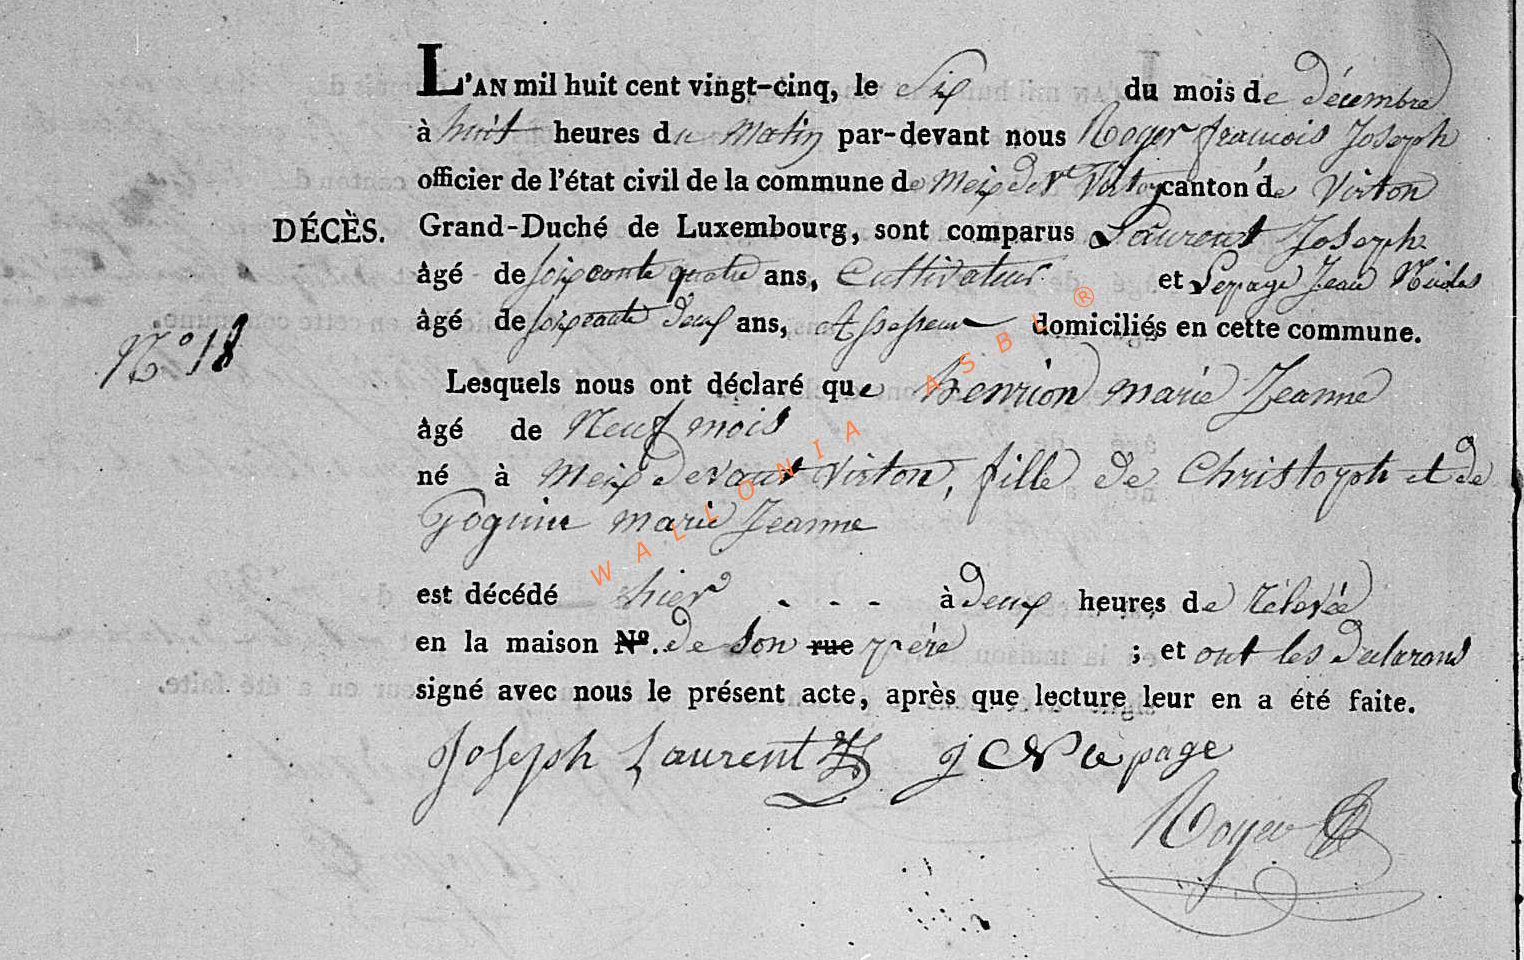 L'AN mil huit cent vingt-cinq, le Six du mois de décembre
à huit heures du Matin par-devant nous Roger francois Joseph
officier de l'état civil de la commune de Meix devt Virton canton de Virton
DÉCÈS. Grand-Duché de Luxembourg, sont comparus Laurent Joseph
âgé de soixcante quatre ans, Cultivateur et Lepage Jean Nicolas
âgé de soixcante deux ans, Assesseur domiciliés en cette commune.
N° 18
Lesquels nous ont déclaré que henrion marie Jeanne
âgé de Neuf mois
né à Meix devant Virton, fille de Christoph et de
Goguin marie Jeanne
est décédé hier - - - à deux heures de rélevée
en la maison N°. de Son rue père ; et ont les declarans
signé avec nous le présent acte, après que lecture leur en a été faite.
Joseph Laurent j N Lepage
Roger
WALLONIA ASBL ®